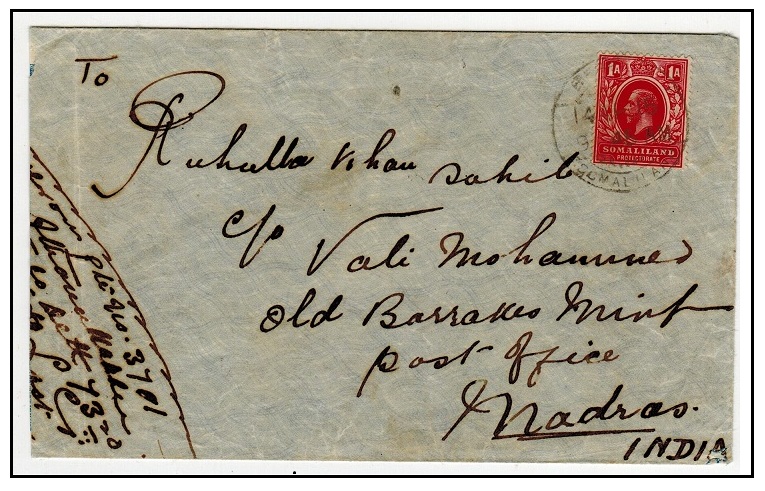 To
Ruhulla Khan sahib
c/o Vali Mohammed
old Barrakes Mint
post office
Madras.
INDIA
1A 1A
SOMALILAND
PROTECTORATE
14
SOMALILA
pte. No. 3701